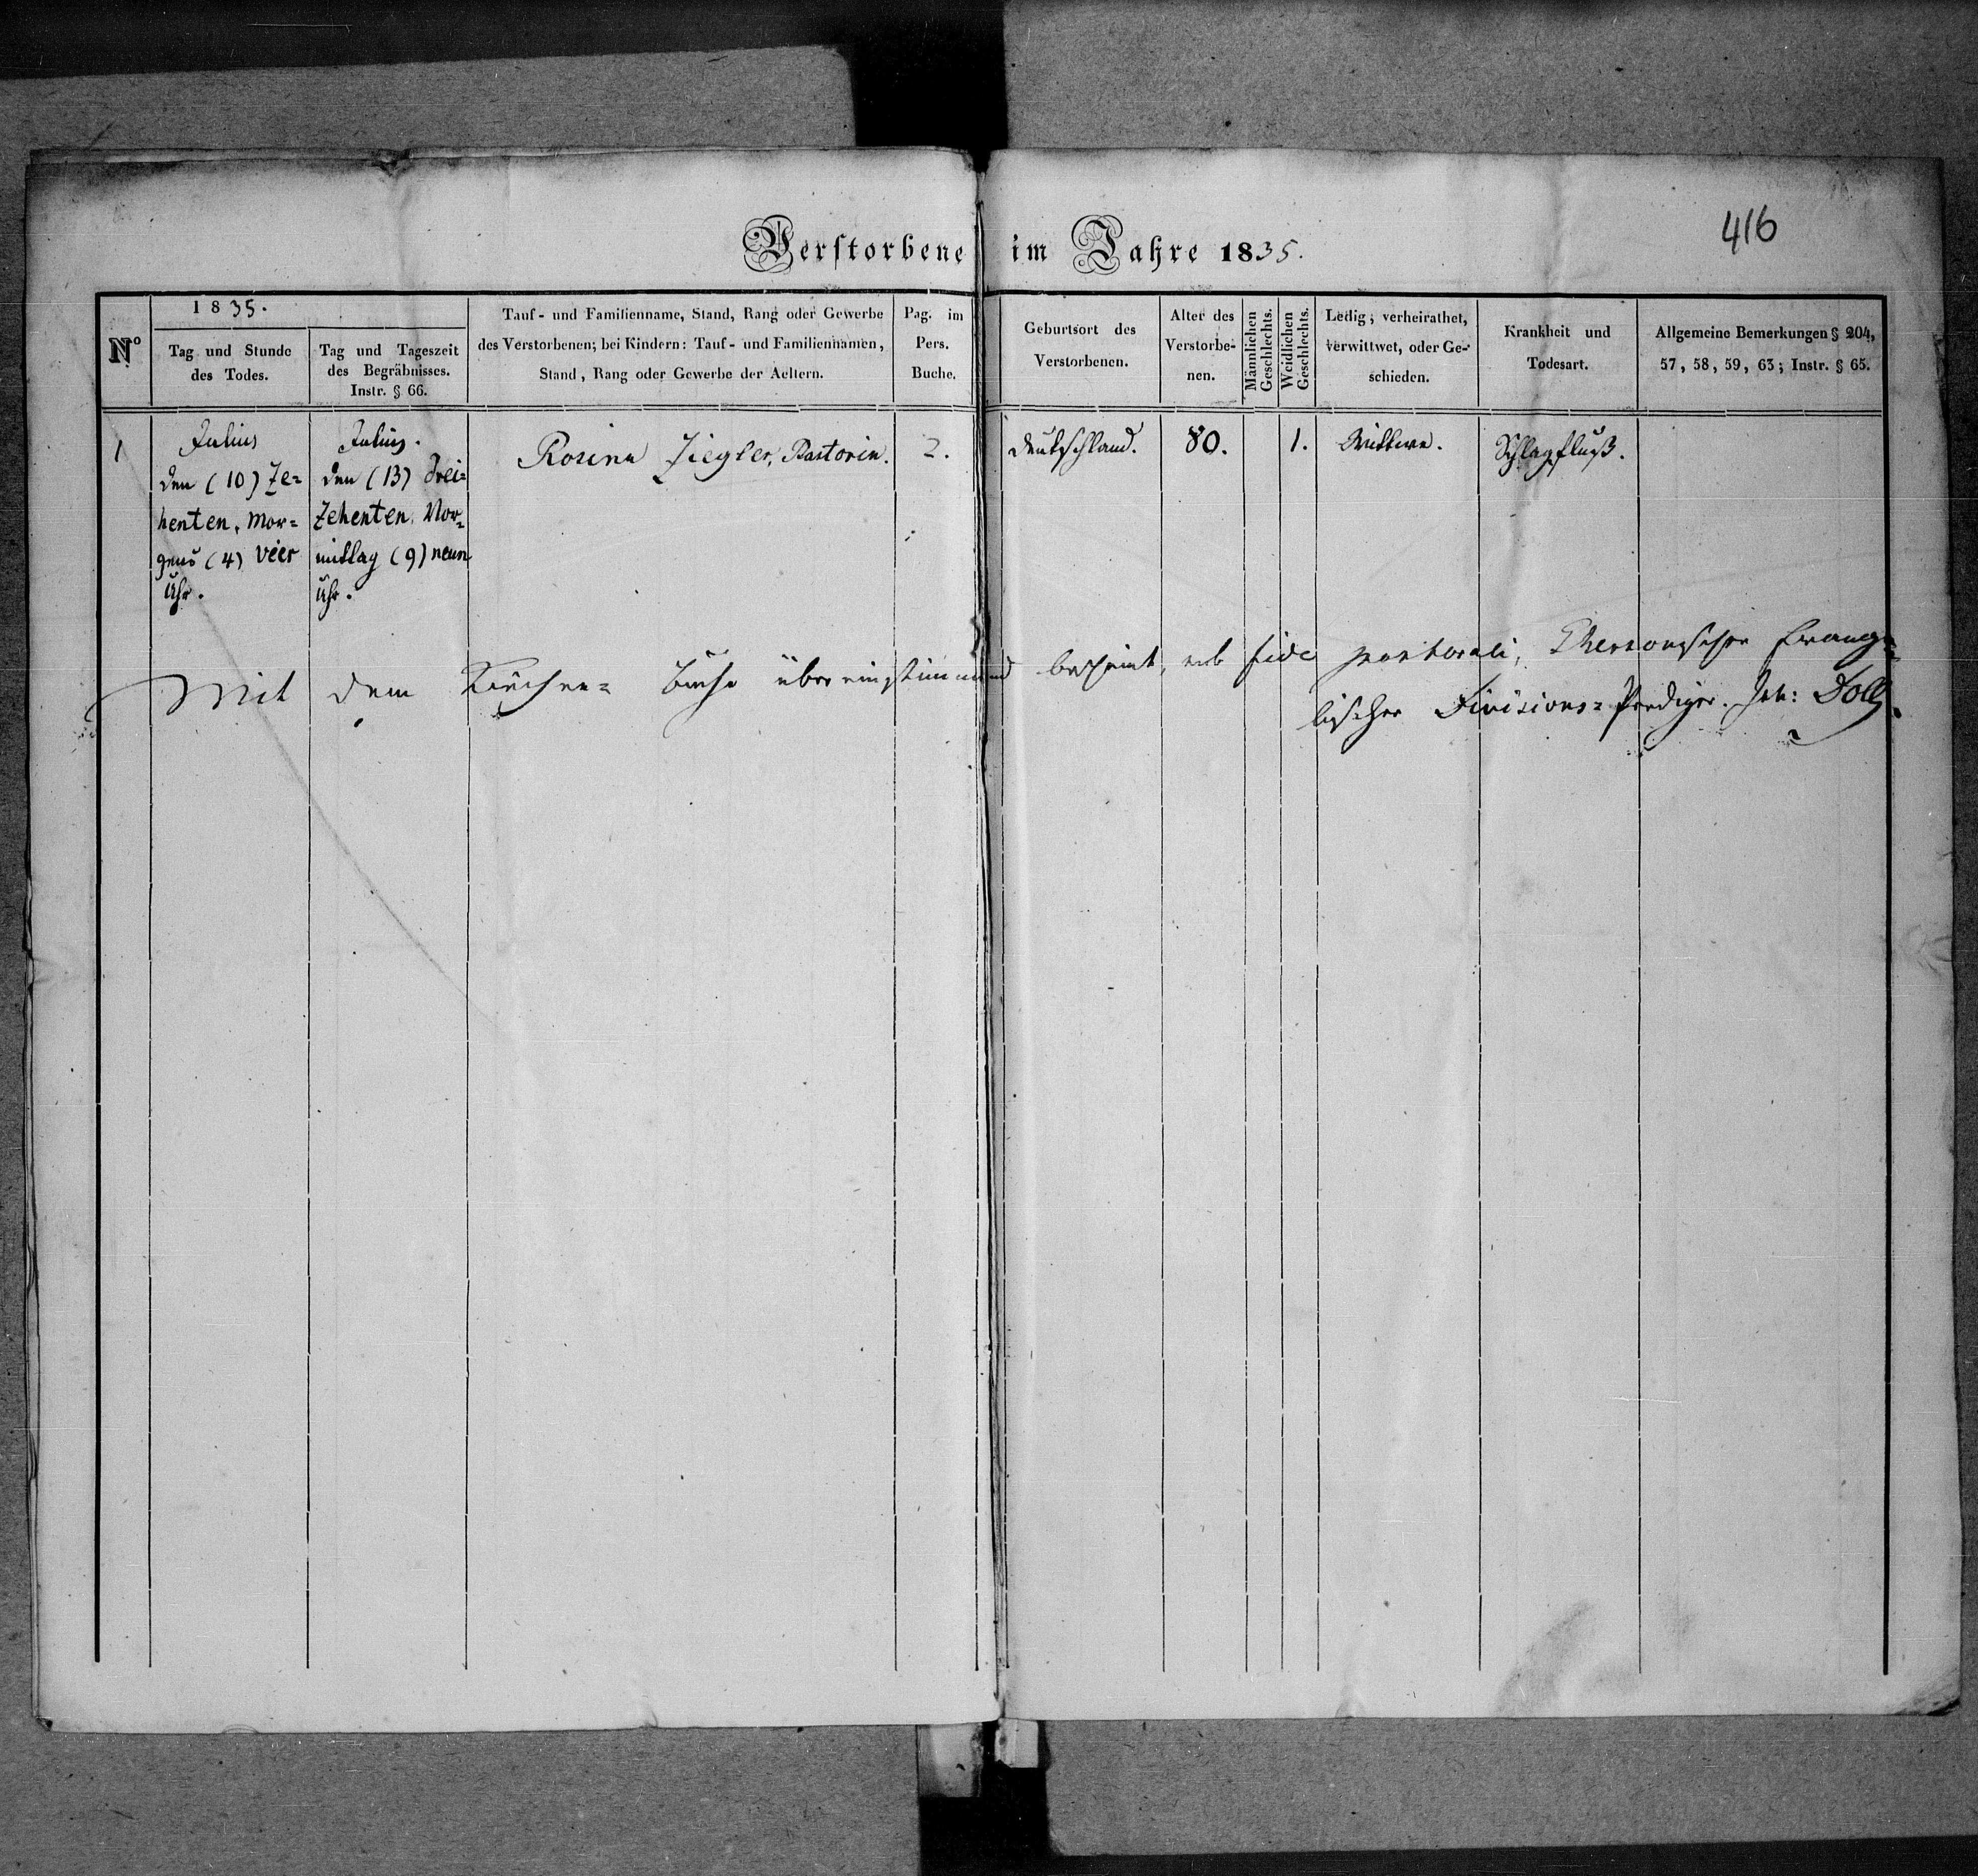 416
Verstorbene im Jahre 1835.
Nº
1835.
Tag und Stunde
des Todes.
Tag und Tageszeit
des Begräbnisses.
Instr. § 66.
Tauf- und Familienname, Stand, Rang oder Gewerbe
des Verstorbenen; bei Kindern: Tauf- und Familiennamen,
Stand, Rang oder Gewerbe der Aeltern.
Pag. im
Pers.
Buche.
Geburtsort des
Verstorbenen.
Alter des
Verstorbe-
nen.
Männlichen
Geschlechts.
Weiblichen
Geschlechts.
Ledig; verheirathet,
verwittwet, oder Ge-
schieden.
Krankheit und
Todesart.
Allgemeine Bemerkungen § 204,
57, 58, 59, 63; Instr. § 65.
1
Julius
den (10) Ze=
henten, Mor=
gens (4) vier
Uhr.
Julius.
den (13) drei=
zehenten, Vor=
mittag (9) neun
Uhr.
Rosina Ziegler, Pastorin.
2.
Deutschland.
80.
1.
Wittwe.
Schlagfluß.
Mit dem Kirchen= Buche übereinstimmend bescheint, sub fide pastorali, Chersonscher Evange=
lischer Divisions=Prediger. Joh: Doll.